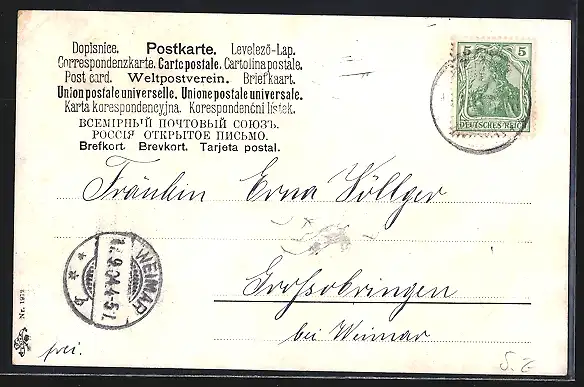 Dopisnice. Postkarte. Levelező-Lap.
Correspondenzkarte. Carte postale. Cartolina postale.
Post card. Weltpostverein. Briefkaart.
Union postale universelle. Unione postale universale.
Karta korespondencyjna. Korespondenčni listek.
ВСЕМІРНЫЙ ПОЧТОВЫЙ СОЮЗЪ.
РОССІЯ ОТКРЫТОЕ ПИСЬМО.
Brefkort. Brevkort. Tarjeta postal.
5 5
DEUTSCHES REICH
Fräulein Erna Völlger
Grossobringen
bei Weimar
WEIMAR
frei.
S. E